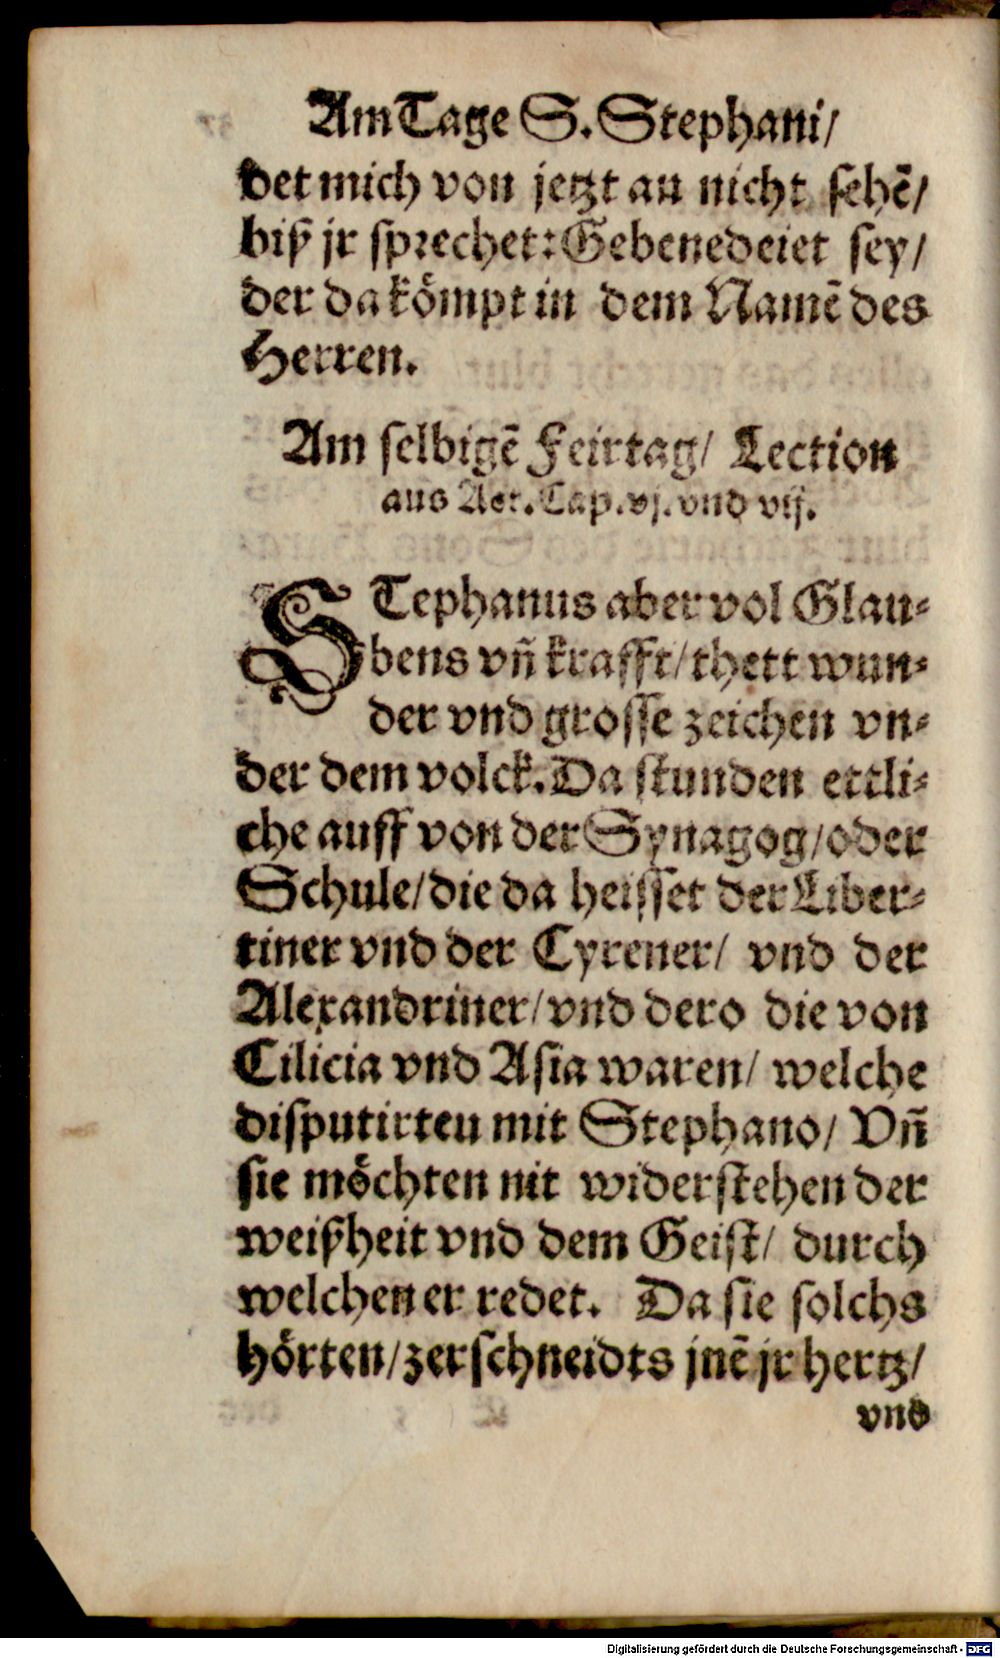 Am Tage S. Stephani/
det mich von jetzt an nicht sehē/
biß jr sprechet: Gebenedeiet sey/
der da kömpt in dem Namē des
Herren.
Am selbigē Feirtag/ Lection
aus Act. Cap. vj. vnd vij.
STephanus aber vol Glau-
bens vñ krafft/ thett wun-
der vnd grosse zeichen vn-
der dem volck. Da stunden ettli-
che auff von der Synagog/ oder
Schule/ die da heisset der Liber-
tiner vnd der Cyrener/ vnd der
Alexandriner/ vnd dero die von
Cilicia vnd Asia waren/ welche
disputirten mit Stephano/ Vñ
sie möchten nit widerstehen der
weißheit vnd dem Geist/ durch
welchen er redet. Da sie solchs
hörten/ zerschneidts jnē jr hertz/
vnd
Digitalisierung gefördert durch die Deutsche Forschungsgemeinschaft - DFG